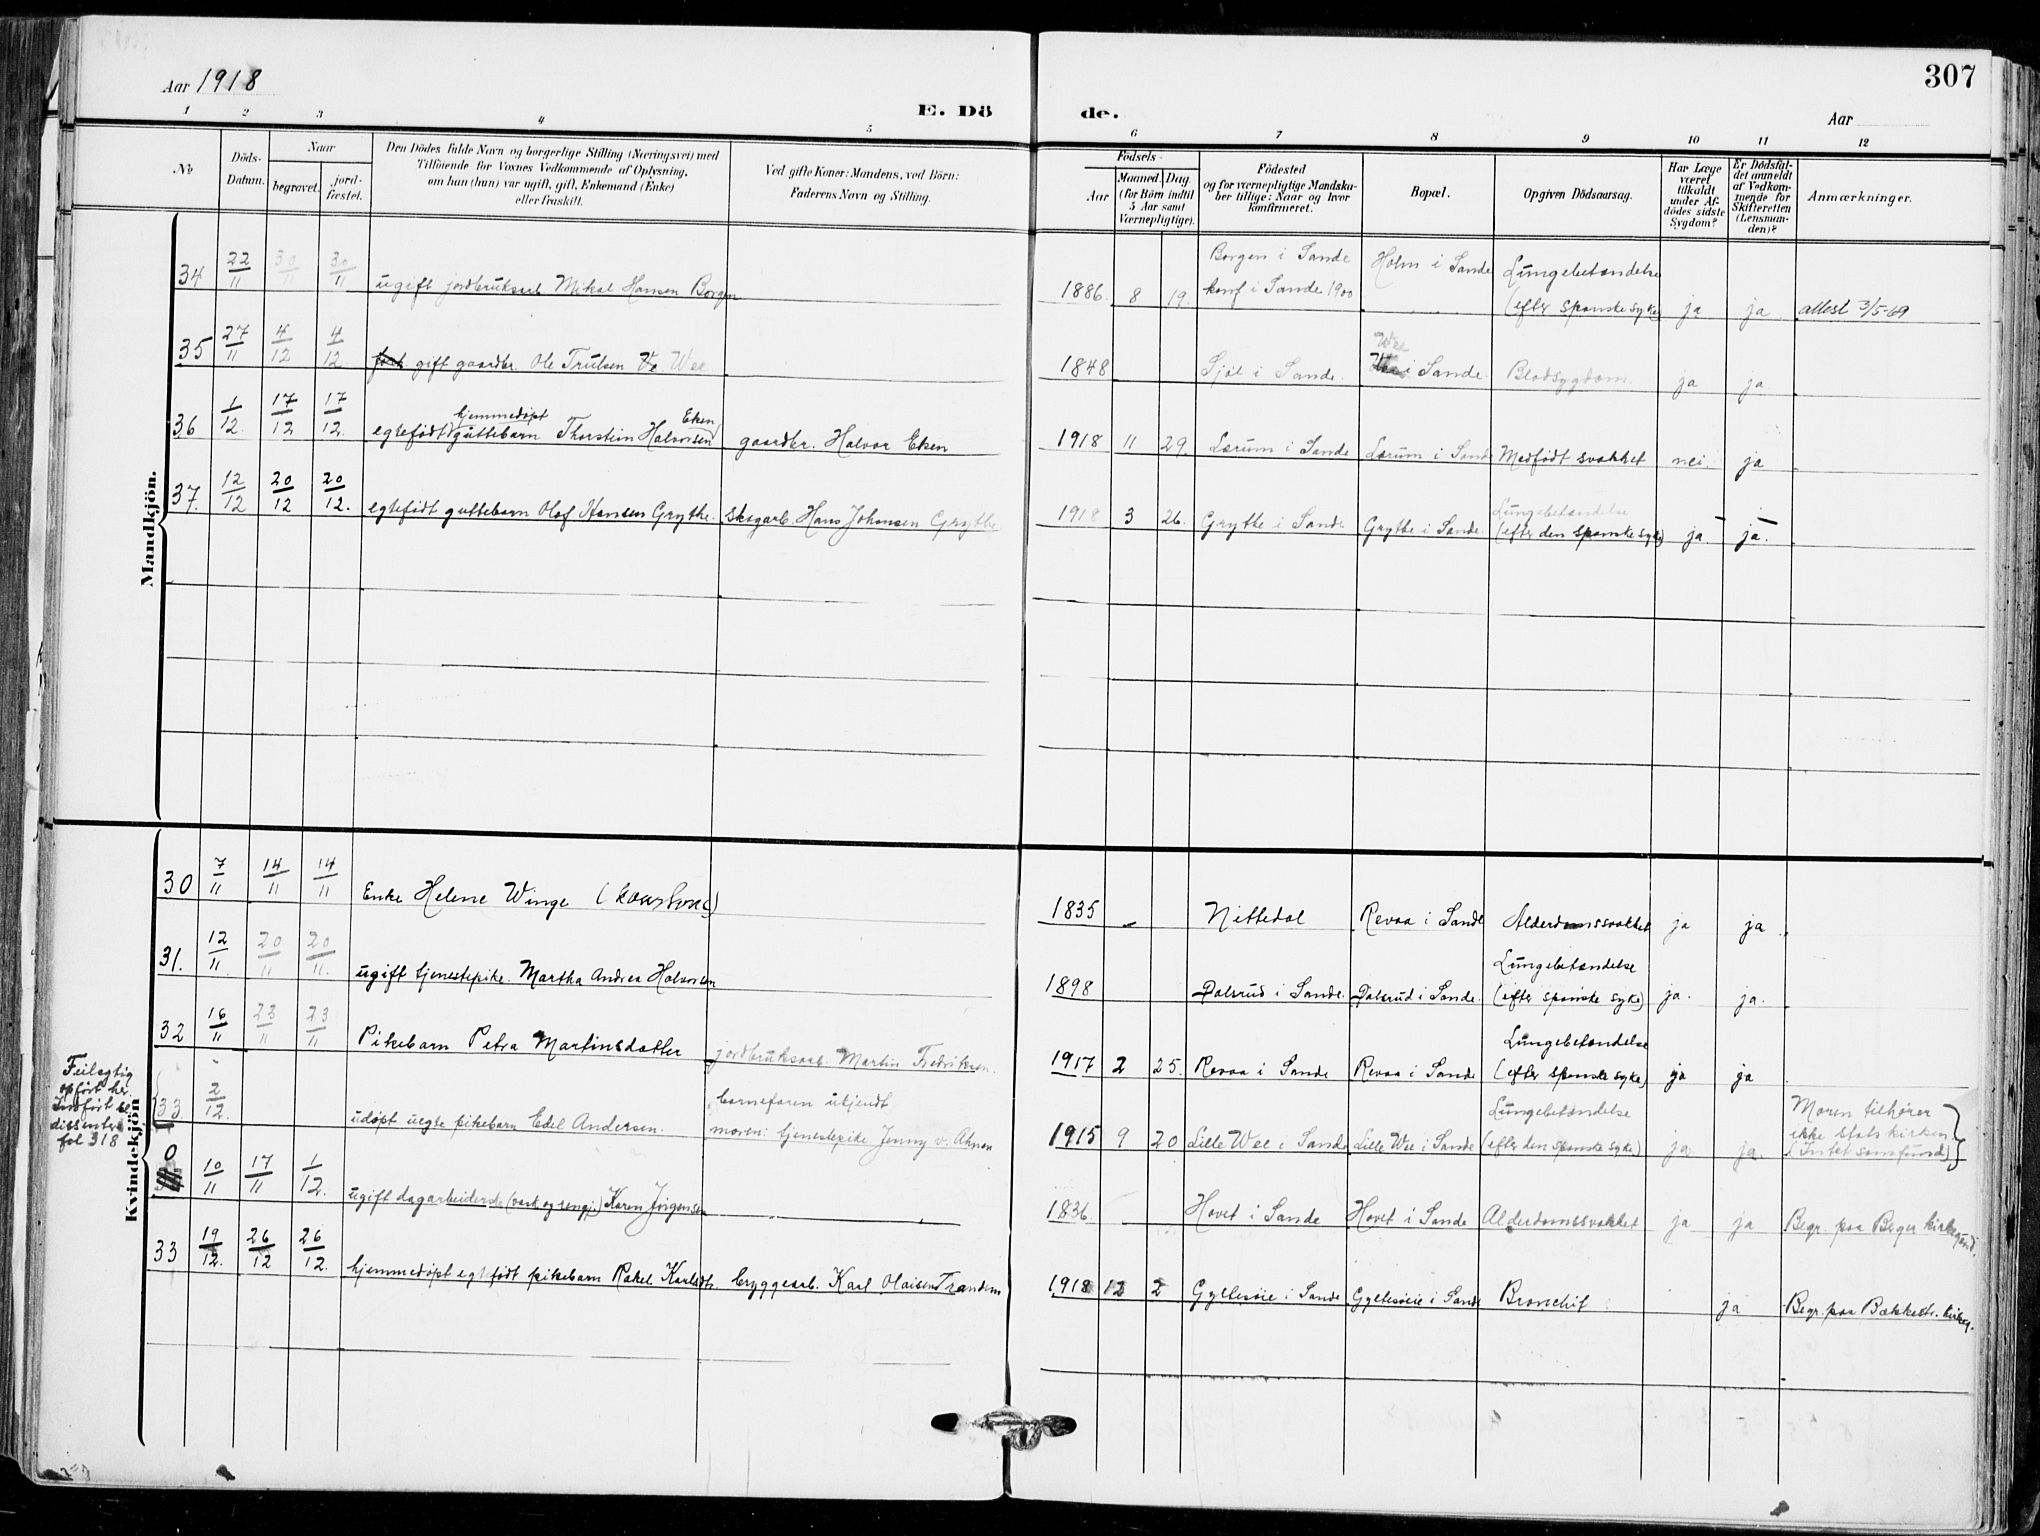 307
Aar 1918
E. Dö de.
Aar
1 2 3 4 5 6 7 8 9 10 11 12
No
Döds-
Datum.
Naar
begravet.
jord-
fæstet.
Den Dödes fulde Navn og borgerlige Stilling (Næringsvei) med
Tilföiende for Voxnes Vedkommende af Oplysning,
om han (hun) var ugift, gift, Enkemand (Enke)
eller fraskilt.
Ved gifte Koner: Mandens, ved Börn:
Faderens Navn og Stilling.
Födsels-
Aar
Maaned. Dag
(for Börn indtil
5 Aar samt
Værnepligtige).
Födested
og for værnepligtige Mandska-
ber tillige: Naar og hvor
konfirmeret.
Bopæl.
Opgiven Dödsaarsag.
Har Læge
været
tilkaldt
under Af-
dödes sidste
Sygdom?
Er Dödsfal-
det anmeldt
af Vedkom-
mende for
Skifteretten
(Lensman-
den)?
Anmærkninger.
Mandkjön.
34 22/11 30/11 30/11 ugift jordbruksarb Mikal Hansen Borgen 1886. 8 19. Borgen i Sande
konf i Sande 1900 Holm i Sande Lungebetændelse
(efter spanske syke) ja ja attest 3/5-69
35 27/11 4/12 4/12 gift gaardbr. Ole Trulsen Wee 1848 Sjøl i Sande. Wee i Sande. Blodsygdom. ja ja
36 1/12. 17/12 17/12. egtefødt hjemmedøpt guttebarn Thorstein Halvorsen Eken gaardbr. Halvor Eken 1918 11 29. Lærum i Sande Lærum i Sande Medfødt svakhet nei. ja
37. 12/12 20/12 20/12. egtefødt guttebarn Olaf Hansen Grytte. Skogarb. Hans Johansen Grytte 1918 3 26. Grytte i Sande Grytte i Sande. Lungebetændelse
(efter den spanske syke) ja ja.
Kvindekjön
30 7/11 14/11 14/11 Enke Helene Winge 1835 – Nittedal Revaa i Sande Alderdomssvakhet ja ja
31. 12/11. 20/11 20/11. ugift tjenestepike. Martha Andrea Halvorsen 1898 Dalsrud i Sande. Dalsrud i Sande. Lungebetændelse
(efter spanske syke) ja. ja.
32 16/11 23/11 23/11 Pikebarn Petra Martinsdatter jordbruksarb. Martin Fredriksen. 1917 2 25. Revaa i Sande Revaa i Sande Lungebetændelse
(efter spanske syke) ja ja
Feilagtig
opført her
Indført
dissenter
fol 318
33. 2/12. udøpt uegte pikebarn Edel Andersen. barnefaren ukjendt
moren: tjenestepike Jenny 1915 9 20 Lille Wee i Sande Lille Wee i Sande Lungebetændelse
(efter den spanske syke) ja ja. Moren tilhører
ikke statskirken
(Intet samfund)
0 10/11 17/11 1/12. ugift dagarbeiderske (vask og rengj.) Karen Jörgensen 1836 Hovet i Sande Hovet i Sande Alderdomssvakhet ja ja Begr. paa Berger kirkegaard.
33 19/12. 26/12 26/12. hjemmedøpt egtefødt pikebarn Rakel Karlsdtr. bryggearb. Karl Olaisen Trandem 1918 12 2 Gyltesøie i Sande Gyltesøie i Sande Bronchit ja Begr. paa Bækkestr. kirkeg.